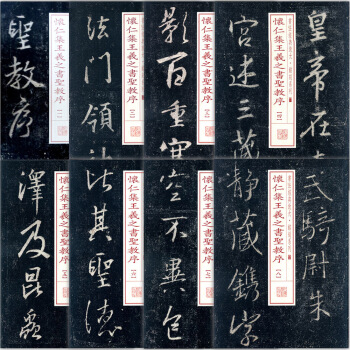 聖教序
懷仁集王羲之書聖教序 [一]
法門領
懷仁集王羲之書聖教序
影百重寒
懷仁集王羲之書聖教序
宮述三藏
懷仁集王羲之書聖教序
皇帝在
澤及昆蟲
懷仁集王羲之書聖教序
比其聖德
懷仁集王羲之書聖教序
空不異色
懷仁集王羲之書聖教序
靜藏鐫字
懷仁集王羲之書聖教序
武騎尉朱